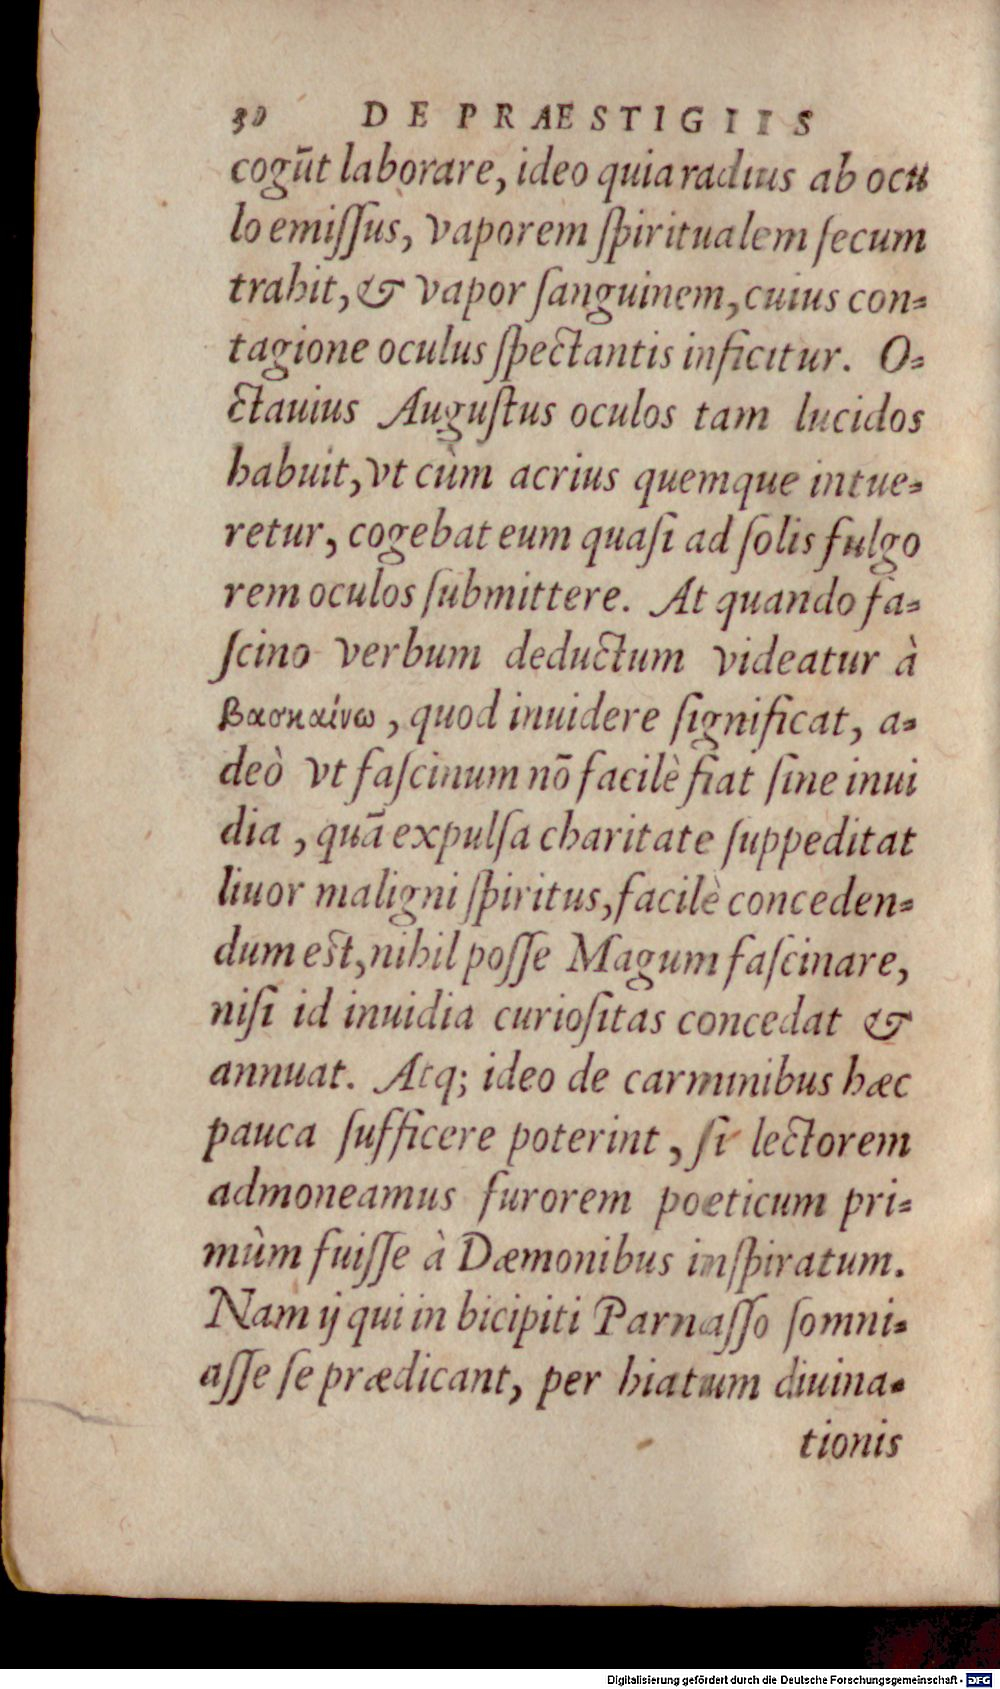 30 DE PRÆSTIGIIS
cogūt laborare, ideo quia radius ab ocu
lo emiſſus, vaporem ſpiritualem ſecum
trahit, & vapor ſanguinem, cuius con=
tagione oculus ſpectantis inficitur. O=
ctauius Auguſtus oculos tam lucidos
habuit, vt cùm acrius quemque intue=
retur, cogebat eum quaſi ad ſolis fulgo
rem oculos ſubmittere. At quando fa=
ſcino verbum deductum videatur à
βασκαίνω, quod inuidere ſignificat, a=
deò vt faſcinum nō facilè fiat ſine inui
dia, quā expulſa charitate ſuppeditat
liuor maligni ſpiritus, facilè conceden=
dum est, nihil poſſe Magum faſcinare,
niſi id inuidia curioſitas concedat &
annuat. Atq; ideo de carminibus hæc
pauca ſufficere poterint, ſi lectorem
admoneamus furorem poeticum pri=
mùm fuiſſe à Dæmonibus inſpiratum.
Nam ij qui in bicipiti Parnaſſo ſomni=
aſſe ſe prædicant, per hiatum diuina=
tionis
Digitalisierung gefördert durch die Deutsche Forschungsgemeinschaft - DFG